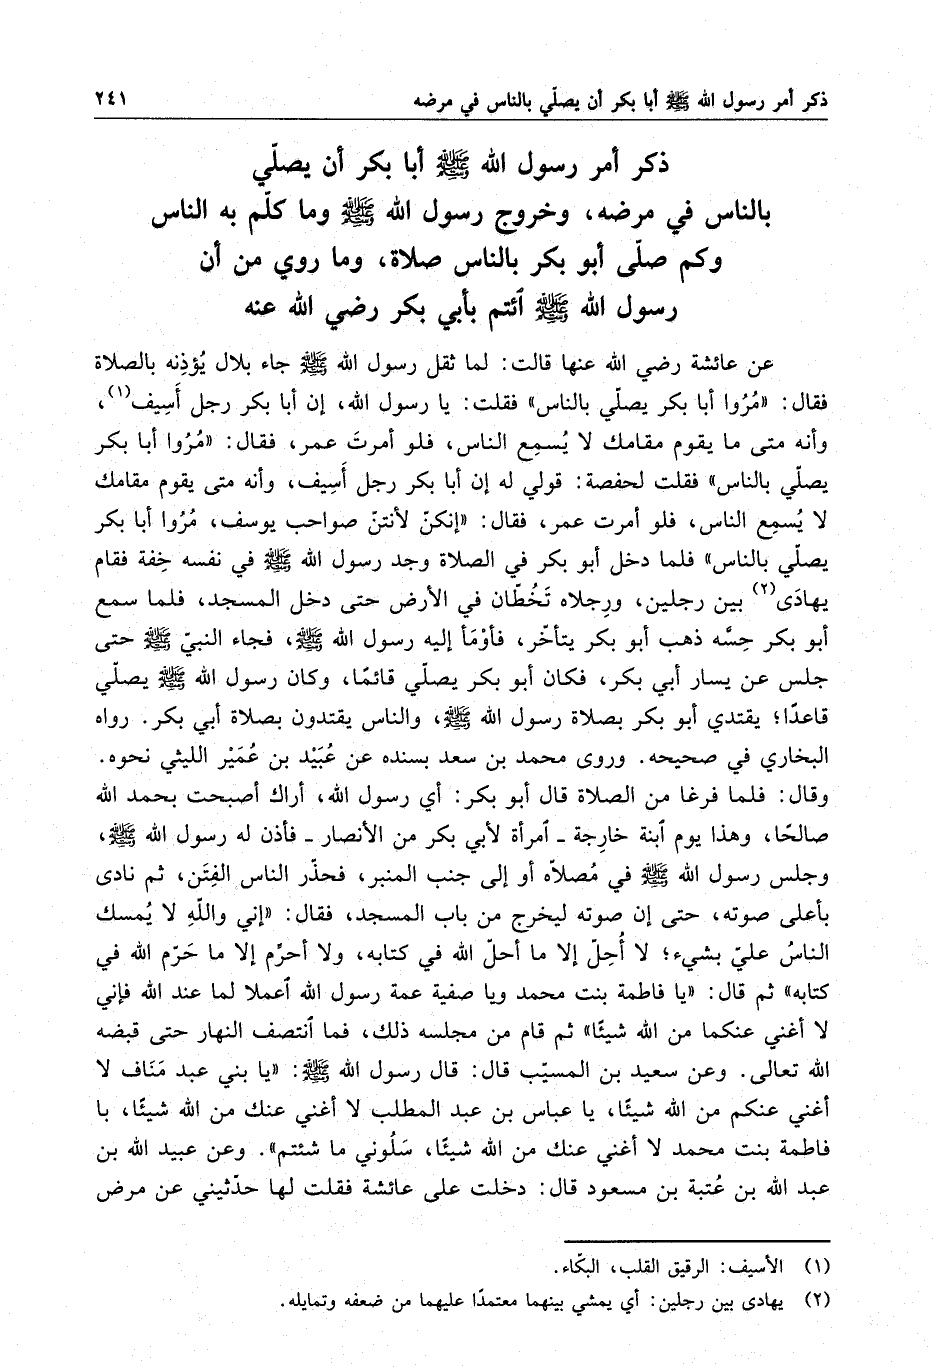 ذكر أمر رسول الله ﷺ أبا بكر أن يصلّي بالناس في مرضه ٢٤١
ذكر أمر رسول الله ﷺ أبا بكر أن يصلّي
بالناس في مرضه، وخروج رسول الله ﷺ وما كلّم به الناس
وكم صلّى أبو بكر بالناس صلاة، وما روي من أن
رسول الله ﷺ ٱئتم بأبي بكر رضي الله عنه
عن عائشة رضي الله عنها قالت: لما ثقل رسول الله ﷺ جاء بلال يُؤذِنه بالصلاة
فقال: «مُرُوا أبا بكر يصلّي بالناس» فقلت: يا رسول الله، إن أبا بكر رجل أَسِيف(١)،
وأنه متى ما يقوم مقامك لا يُسمِع الناس، فلو أمرتَ عمر، فقال: «مُرُوا أبا بكر
يصلّي بالناس» فقلت لحفصة: قولي له إن أبا بكر رجل أَسِيف، وأنه متى يقوم مقامك
لا يُسمِع الناس، فلو أمرت عمر، فقال: «إنكنّ لأنتنّ صواحب يوسف، مُرُوا أبا بكر
يصلّي بالناس» فلما دخل أبو بكر في الصلاة وجد رسول الله ﷺ في نفسه خِفة فقام
يهادَى(٢) بين رجلين، ورِجلاه تَخُطّان في الأرض حتى دخل المسجد، فلما سمع
أبو بكر حِسَّه ذهب أبو بكر يتأخّر، فأوْمَأ إليه رسول الله ﷺ، فجاء النبيّ ﷺ حتى
جلس عن يسار أبي بكر، فكان أبو بكر يصلّي قائمًا، وكان رسول الله ﷺ يصلّي
قاعدًا؛ يقتدي أبو بكر بصلاة رسول الله ﷺ، والناس يقتدون بصلاة أبي بكر. رواه
البخاري في صحيحه. وروى محمد بن سعد بسنده عن عُبَيْد بن عُمَيْر الليثي نحوه.
وقال: فلما فرغا من الصلاة قال أبو بكر: أي رسول الله، أراك أصبحت بحمد الله
صالحًا، وهذا يوم ٱبنة خارجة ـ ٱمرأة لأبي بكر من الأنصار ـ فأذن له رسول الله ﷺ،
وجلس رسول الله ﷺ في مُصلاّه أو إلى جنب المنبر، فحذّر الناس الفِتَن، ثم نادى
بأعلى صوته، حتى إن صوته ليخرج من باب المسجد، فقال: «إني واللَّهِ لا يُمسك
الناسُ عليّ بشيء؛ لا أُحِلّ إلا ما أحلّ الله في كتابه، ولا أحرِّم إلا ما حَرّم الله في
كتابه» ثم قال: «يا فاطمة بنت محمد ويا صفية عمة رسول الله ٱعملا لما عند الله فإني
لا أغني عنكما من الله شيئًا» ثم قام من مجلسه ذلك، فما ٱنتصف النهار حتى قبضه
الله تعالى. وعن سعيد بن المسيّب قال: قال رسول الله ﷺ: «يا بني عبد مَنَاف لا
أغني عنكم من الله شيئًا، يا عباس بن عبد المطلب لا أغني عنك من الله شيئًا، با
فاطمة بنت محمد لا أغني عنك من الله شيئًا، سَلُوني ما شئتم». وعن عبيد الله بن
عبد الله بن عُتبة بن مسعود قال: دخلت على عائشة فقلت لها حدّثيني عن مرض
(١) الأسيف: الرقيق القلب، البكّاء.
(٢) يهادى بين رجلين: أي يمشي بينهما معتمدًا عليهما من ضعفه وتمايله.